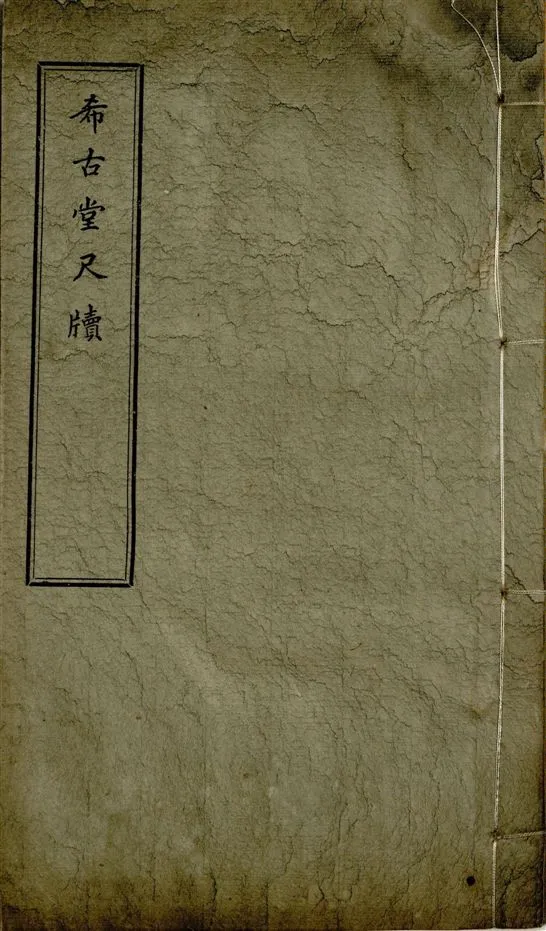 希古堂尺牘